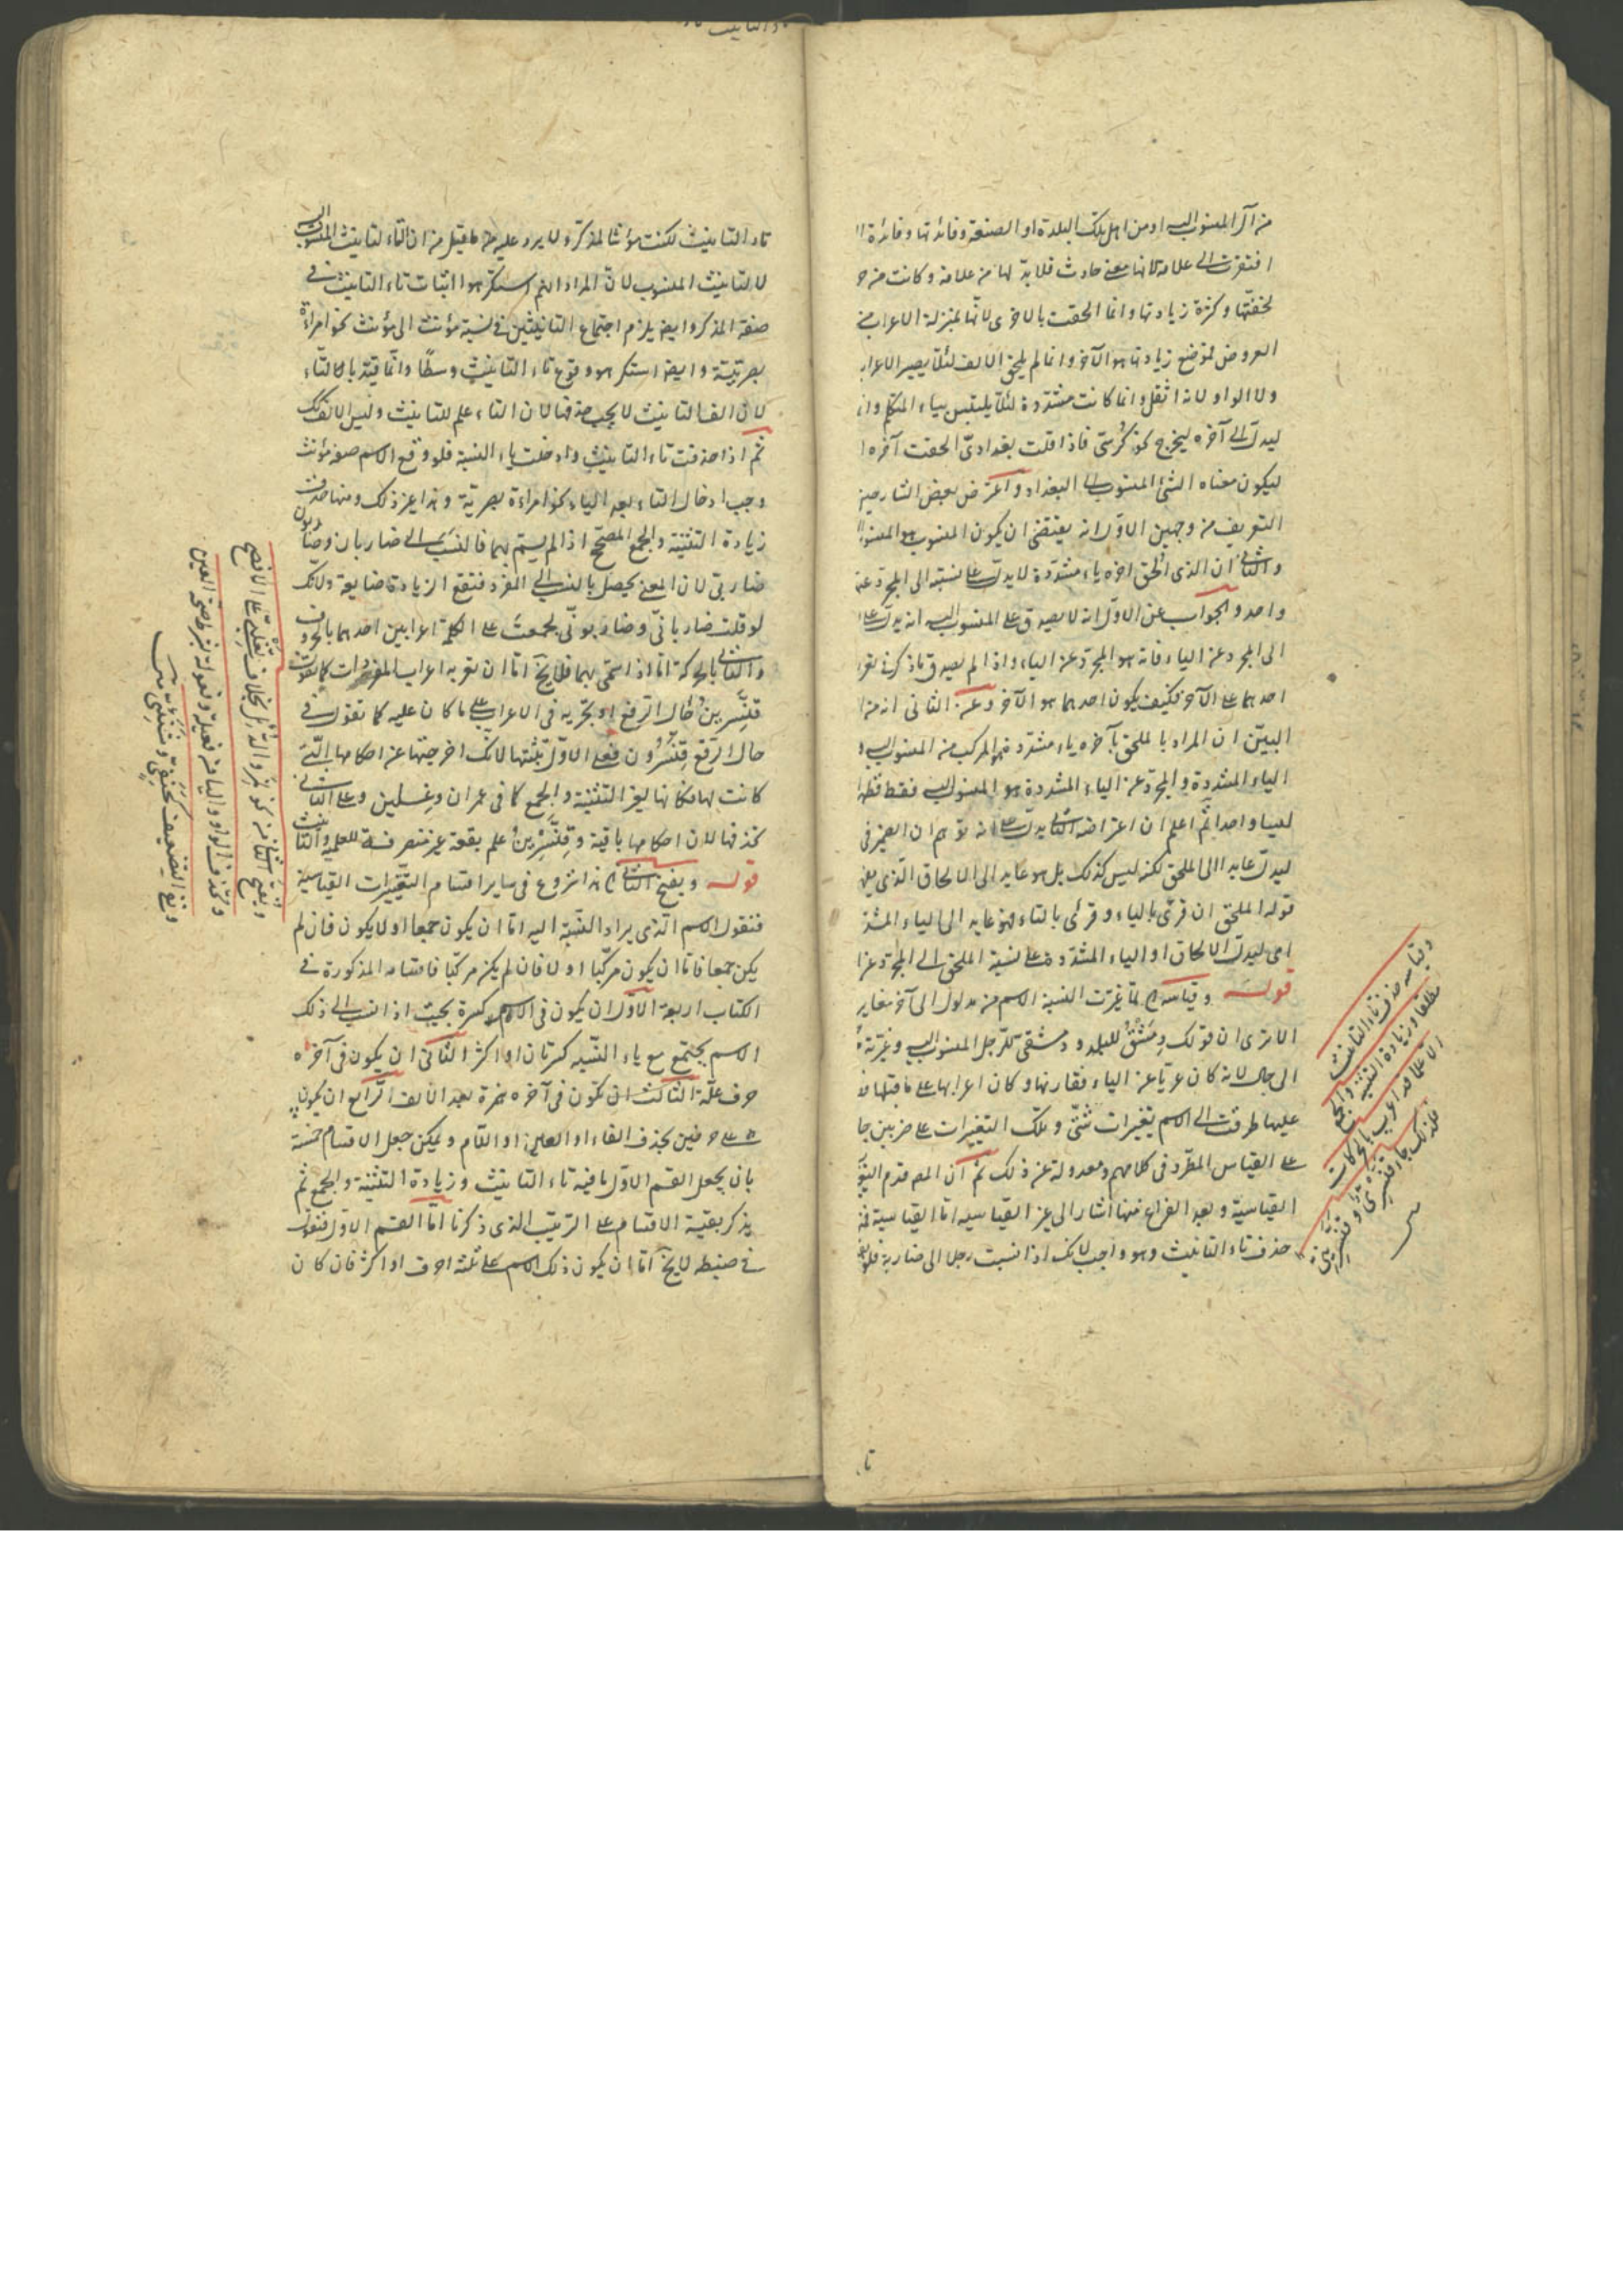 من آل المنسوب اليه او من اهل تلك البلدة او الصنعة وفائدتها وفائدة ا
افتقرت الى علامة لانها معنى حادث فلا بد لها من علامة وكانت من حر
لخفتها وكثرة زيادتها وانما الحقت بالاخرى لانها بمنزلة الاعراب من
العروض فموضع زيادتها هو الآخر وانما لم يلحق الالف لئلا يصير الاعراب
ولا الواو لانه اثقل وانما كانت مشددة لئلا يلتبس بياء المتكلم وان
ليدل الى آخره ليخرج نحو كرسىّ فاذا قلت بغدادىّ الحقت آخره ا
ليكون معناه الشئ المنسوب الى البغداد واعترض بعض الشارحين
التعريف من وجهين الاول انه يقتضى ان يكون المنسوب هو المنسوب
والثانى ان الذى الحق اخره ياء مشددة لا يدل على نسبته الى المجرد عنه
واحد والجواب عن الاول انه لا يصدق على المنسوب اليه انه يدل على
الى المجرد عن الياء فانه هو المجرد عن الياء واذا لم يصدق ما ذكر فى تعر
احدهما على الآخر فكيف يكون احدهما هو الآخر وعن الثانى انه من ا
البيّن ان المراد بالملحق بآخره ياء مشددة هو المركب من المنسوب اليه و
الياء المشددة والمجرد عن الياء المشددة هو المنسوب اليه فقط فهما
ليسا واحدا ثم اعلم ان اعتراضه الثانى يدل على انه توهم ان الضمير فى
ليدل عايد الى الملحق لكنه ليس كذلك بل هو عايد الى الالحاق الذى يف
قوله الملحق ان قرئ بالياء وقرئ بالتاء فهو عايد الى الياء المشد
اى ليدل الالحاق او الياء المشددة على نسبة الملحق الى المجرد عن ا
قوله وقياسه لما غيرت النسبة الاسم من مدلول الى آخر مغاير
الا ترى ان قولك دمشق للبلد ودمشقى للرجل المنسوب اليه وغيرته
الى حال لانه كان عريا عن الياء فقارنها وكان اعرابها على ما قبلها
عليها طرقت الى الاسم تغييرات شتى وتلك التغييرات على ضربين جا
على القياس المطرد فى كلامهم ومعدولة عن ذلك ثم ان المص قدم التغي
القياسية وبعد الفراغ منها اشار الى غير القياسيه اما القياسية فم
حذف تاء التانيث وهو واجب لانك اذا نسبت رجلا الى ضاربة فلو
وقياسه حذف تاء التانيث
مطلقا وزيادة التثنية والجمع
الا علما قد اعرب بالحركات
فلذلك جاء قنسرى وقنسرينى
تا
تاء التانيث لكنت مؤنثا لمذكر ولا يرد عليه ما قيل من ان التاء لتانيث المنسوب اليه
لا لتانيث المنسوب لان المراد انهم استكرهوا اثبات تاء التانيث فى
صفة المذكر وايضا يلزم اجتماع التانيثين فى نسبة مؤنث الى مؤنث نحو امراة
بصرتية وايضا استكرهوا وقوع تاء التانيث وسطا وانما قيد بالتاء
لان الف التانيث لا يجب حذفها لان التاء علم للتانيث وليس الالف كك
ثم اذا حذفت تاء التانيث وادخلت ياء النسبة فلو وقع الاسم صفة مؤنث
وجب ادخال التاء بعد الياء نحو امراءة بصرية وهذا غير ذلك ومنها حذف
زيادة التثنية والجمع المصحح اذا لم يسم بهما فالنسب الى ضاربان وضاربون
ضاربى لان المعنى يحصل بالنسب الى المفرد فتقع الزيادة ضايعة ولانك
لو قلت ضاربانىّ وضاربونىّ لجمعت على الكلمة اعرابين احدهما بالحروف
والثانى بالحركة اما اذا سمى بهما فلا يخ اما ان تعربه اعراب المفردات كما تقول
قنسرين حال الرفع او تجريه فى الاعراب على ما كان عليه كما تقول فى
حال الرفع قنسرون فعلى الاول تثبتها لانك اخرجتها عن احكامها التى
كانت لها مكانها لغير التثنية والجمع كما فى عمران وغسلين وعلى الثانى
تحذفها لان احكامها باقية وقنسرين علم بقعة غير منصرفة للعلمية والتانيث
قوله ويفتح الثانى هذا شروع فى ساير اقسام التغييرات القياسية
فنقول الاسم الذى يراد النسبة اليه اما ان يكون جمعا او لا يكون فان لم
يكن جمعا فاما ان يكون مركبا او لا فان لم يكن مركبا فاقسامه المذكورة فى
الكتاب اربعة الاول ان يكون فى الاسم كسرة بحيث اذا نسب الى ذلك
الاسم يجتمع مع ياء النسبه كسرتان او اكثر الثانى ان يكون فى آخره
حرف علة الثالث ان تكون فى آخره همزة بعد الالف الرابع ان يكون
على حرفين بحذف الفاء او العين او اللام ويمكن جعل الاقسام خمسة
بان يجعل القسم الاول ما فيه تاء التانيث وزيادة التثنية والجمع ثم
يذكر بقية الاقسام على الترتيب الذى ذكرنا اما القسم الاول فنقول
فى ضبطه لا يخ اما ان يكون ذلك الاسم على ثلثه احرف او اكثر فان كان
ويفتح الثانى من نحو نمر والدئل بخلاف تغلبى على الافصح
وتحذف الواو والياء من فعيلة وفعولة بشرط صحة العين
ونفى التضعيف كحنفى وشنئى